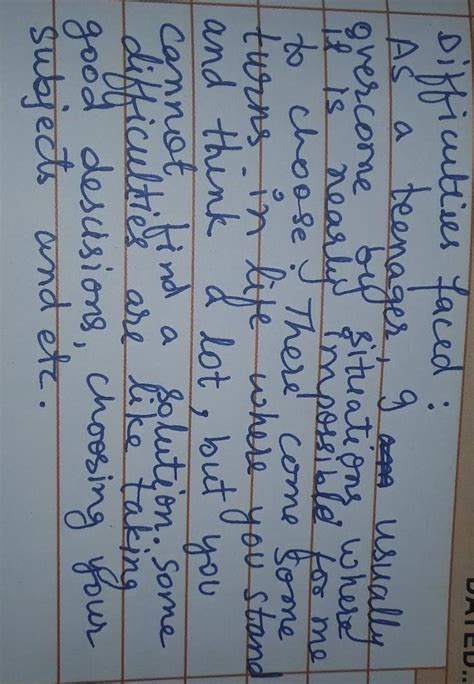 DATED...
Difficulties faced:
As a teenager, I usually
overcome by situations where
it is nearly impossible for me
to choose. There come some
turns in life where you stand
and think a lot, but you
cannot find a solution. some
difficulties are like taking
good desisions, choosing your
subjects and etc.